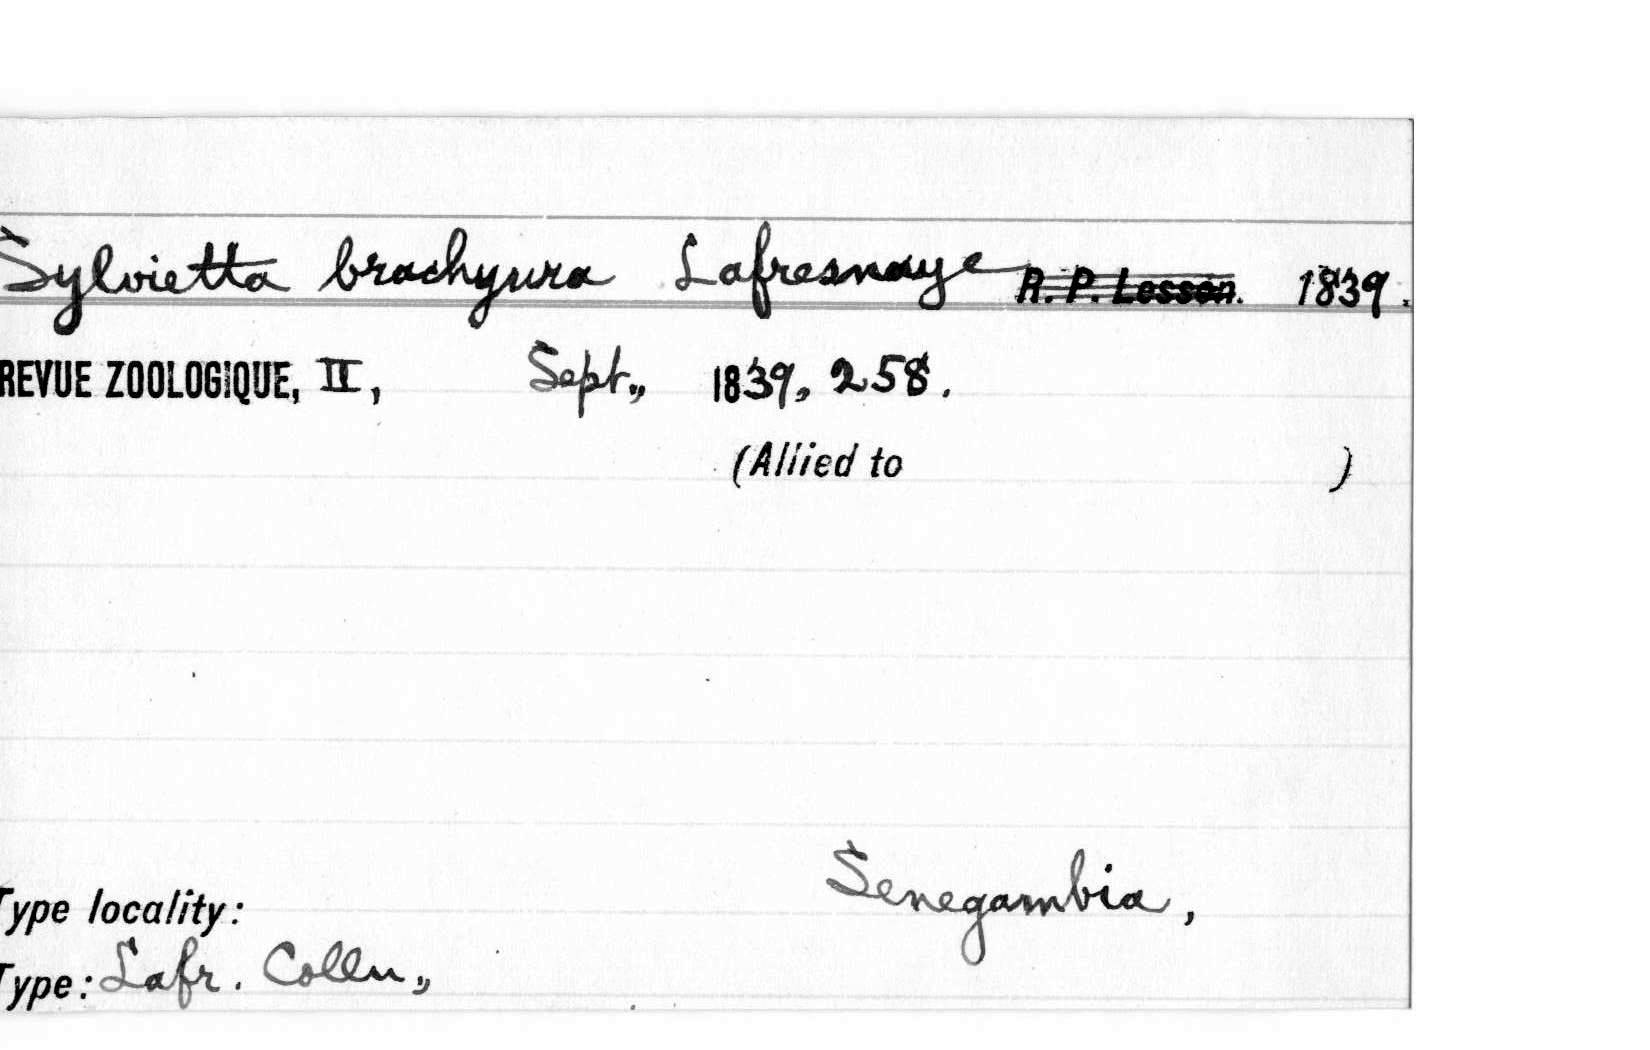 Sylvietta brachyura Lafresnaye R. P. Lesson. 1839.
REVUE ZOOLOGIQUE, II, Sept., 1839, 258.
(Allied to )
Senegambia,
Type locality:
Type: Lafr. Colln.,